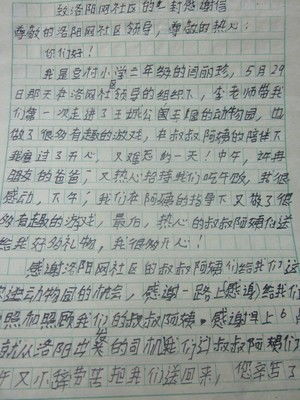 致洛阳网社区的一封感谢信
尊敬的洛阳网社区领导，尊敬的热心
你们好！
我是官村小学二年级的闫丽珍，5月29
日那天在洛网社领导的组织下，李老师带我
们第一次走进了王城公园里的动物园，也
做了很多有趣的游戏，在叔叔阿姨的陪伴下
我度过了开心，又难忘的一天！中午，
朋友的爸爸，又热心招待我们吃午饭，我很
感动，下午，我们在阿姨的指导下又做了很
多有趣的游戏，最后，热心的叔叔阿姨们送
给我好多礼物，我很开心！
感谢洛阳网社区的叔叔阿姨们给我们这
次进动物园的机会，感谢一路上感谢给我们
照加照顾我们的叔叔阿姨，感谢早上6点
就从洛阳出发的司机我们让叔叔阿姨们
又不辞劳苦把我们送回来，您辛苦了